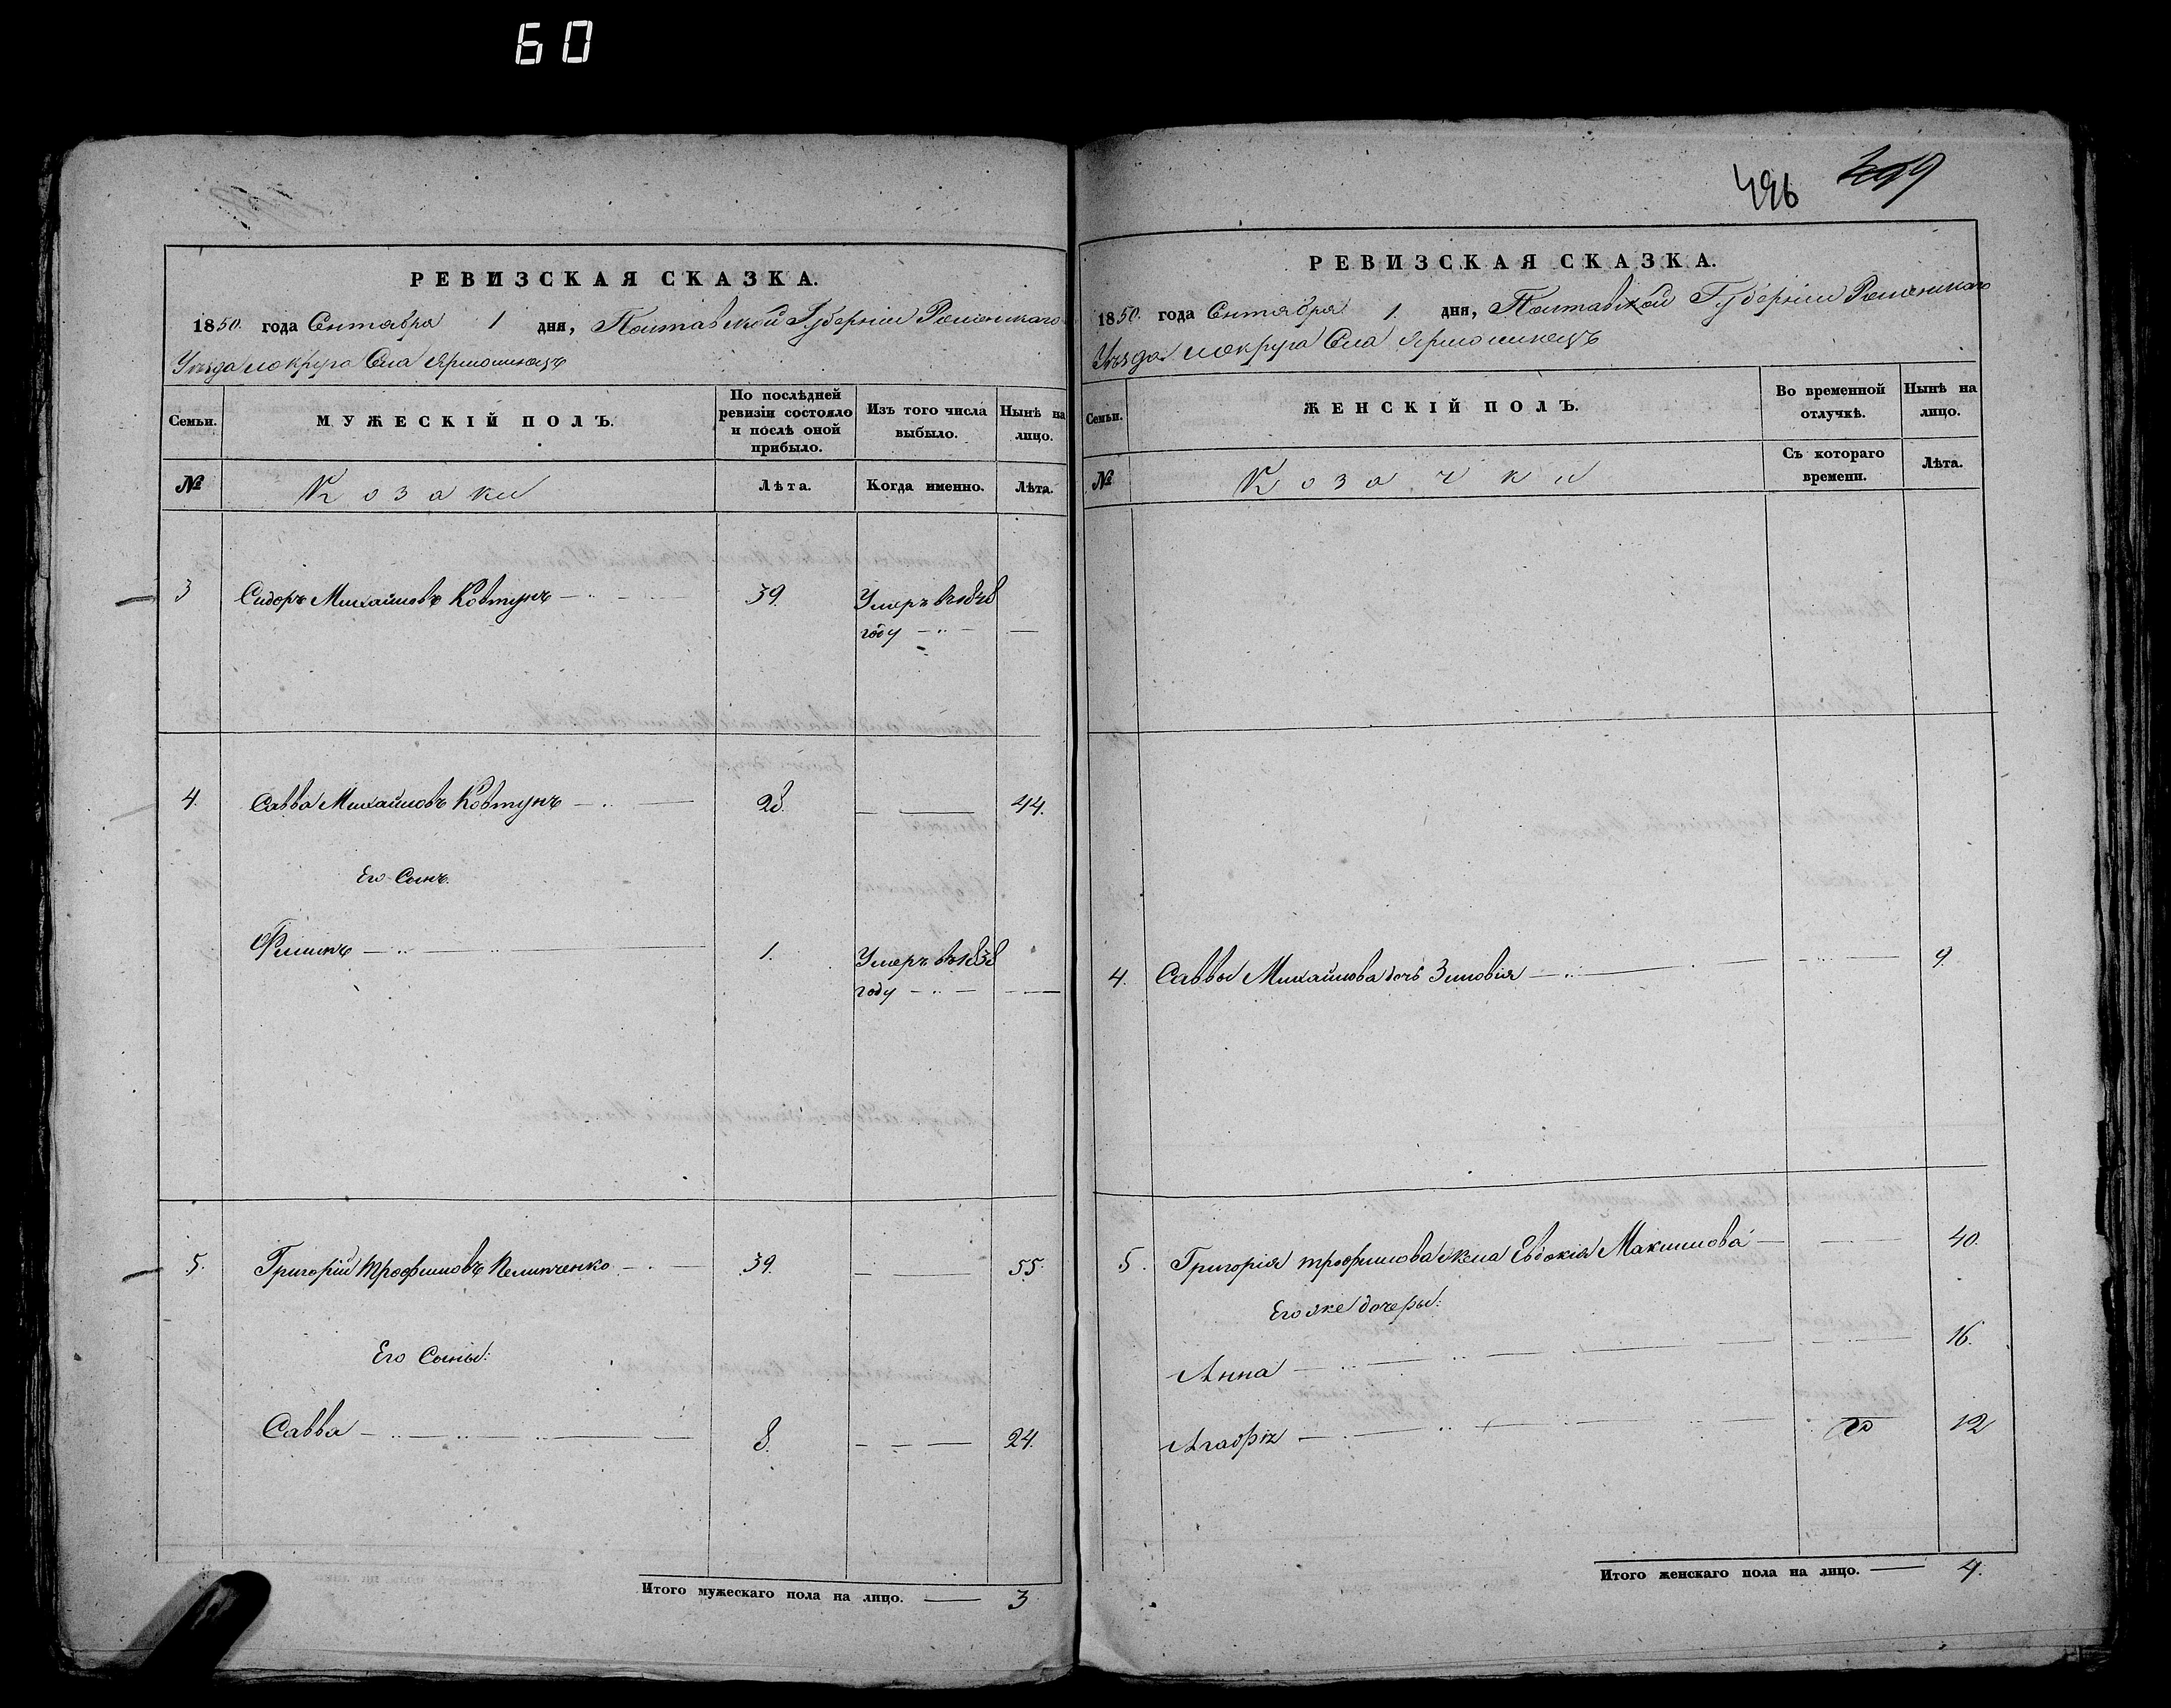 60
496 399
РЕВИЗСКАЯ СКАЗКА.
1850. года Сентября 1 дня, Полтавской Губерніи Роменскаго
Уѣзда и округа Села Ярмолинецъ
Семьи. МУЖЕСКІЙ ПОЛЪ. По послѣдней ревизіи состояло и послѣ оной прибыло. Изъ того числа выбыло. Нынѣ на лицо.
№ Козаки Лѣта. Когда именно. Лѣта.
3 Сидоръ Михайловъ Ковтунъ 39. Умеръ въ 1848
году
4. Савва Михайловъ Ковтунъ 28. 44.
Его Сынъ.
Филипъ 1. Умеръ въ 1838
году
5. Григорій Трофимовъ Пелипченко 39. 55.
Его Сыны:
Савва 8. 24.
Итого мужескаго пола на лицо. 3
РЕВИЗСКАЯ СКАЗКА.
1850. года Сентября 1. дня, Полтавской Губерніи Роменскаго
Уѣзда и округа Села Ярмолинецъ
Семьи. ЖЕНСКІЙ ПОЛЪ. Во временной отлучкѣ. Нынѣ на лицо.
№ Козачки Съ котораго времени. Лѣта.
4. Саввы Михайлова дочь Зиновія 9.
5. Григорія Трофимова жена Евдокія Максимова 40
Его же дочеры:
Анна 16.
Агафія 12
Итого женскаго пола на лицо. 4.